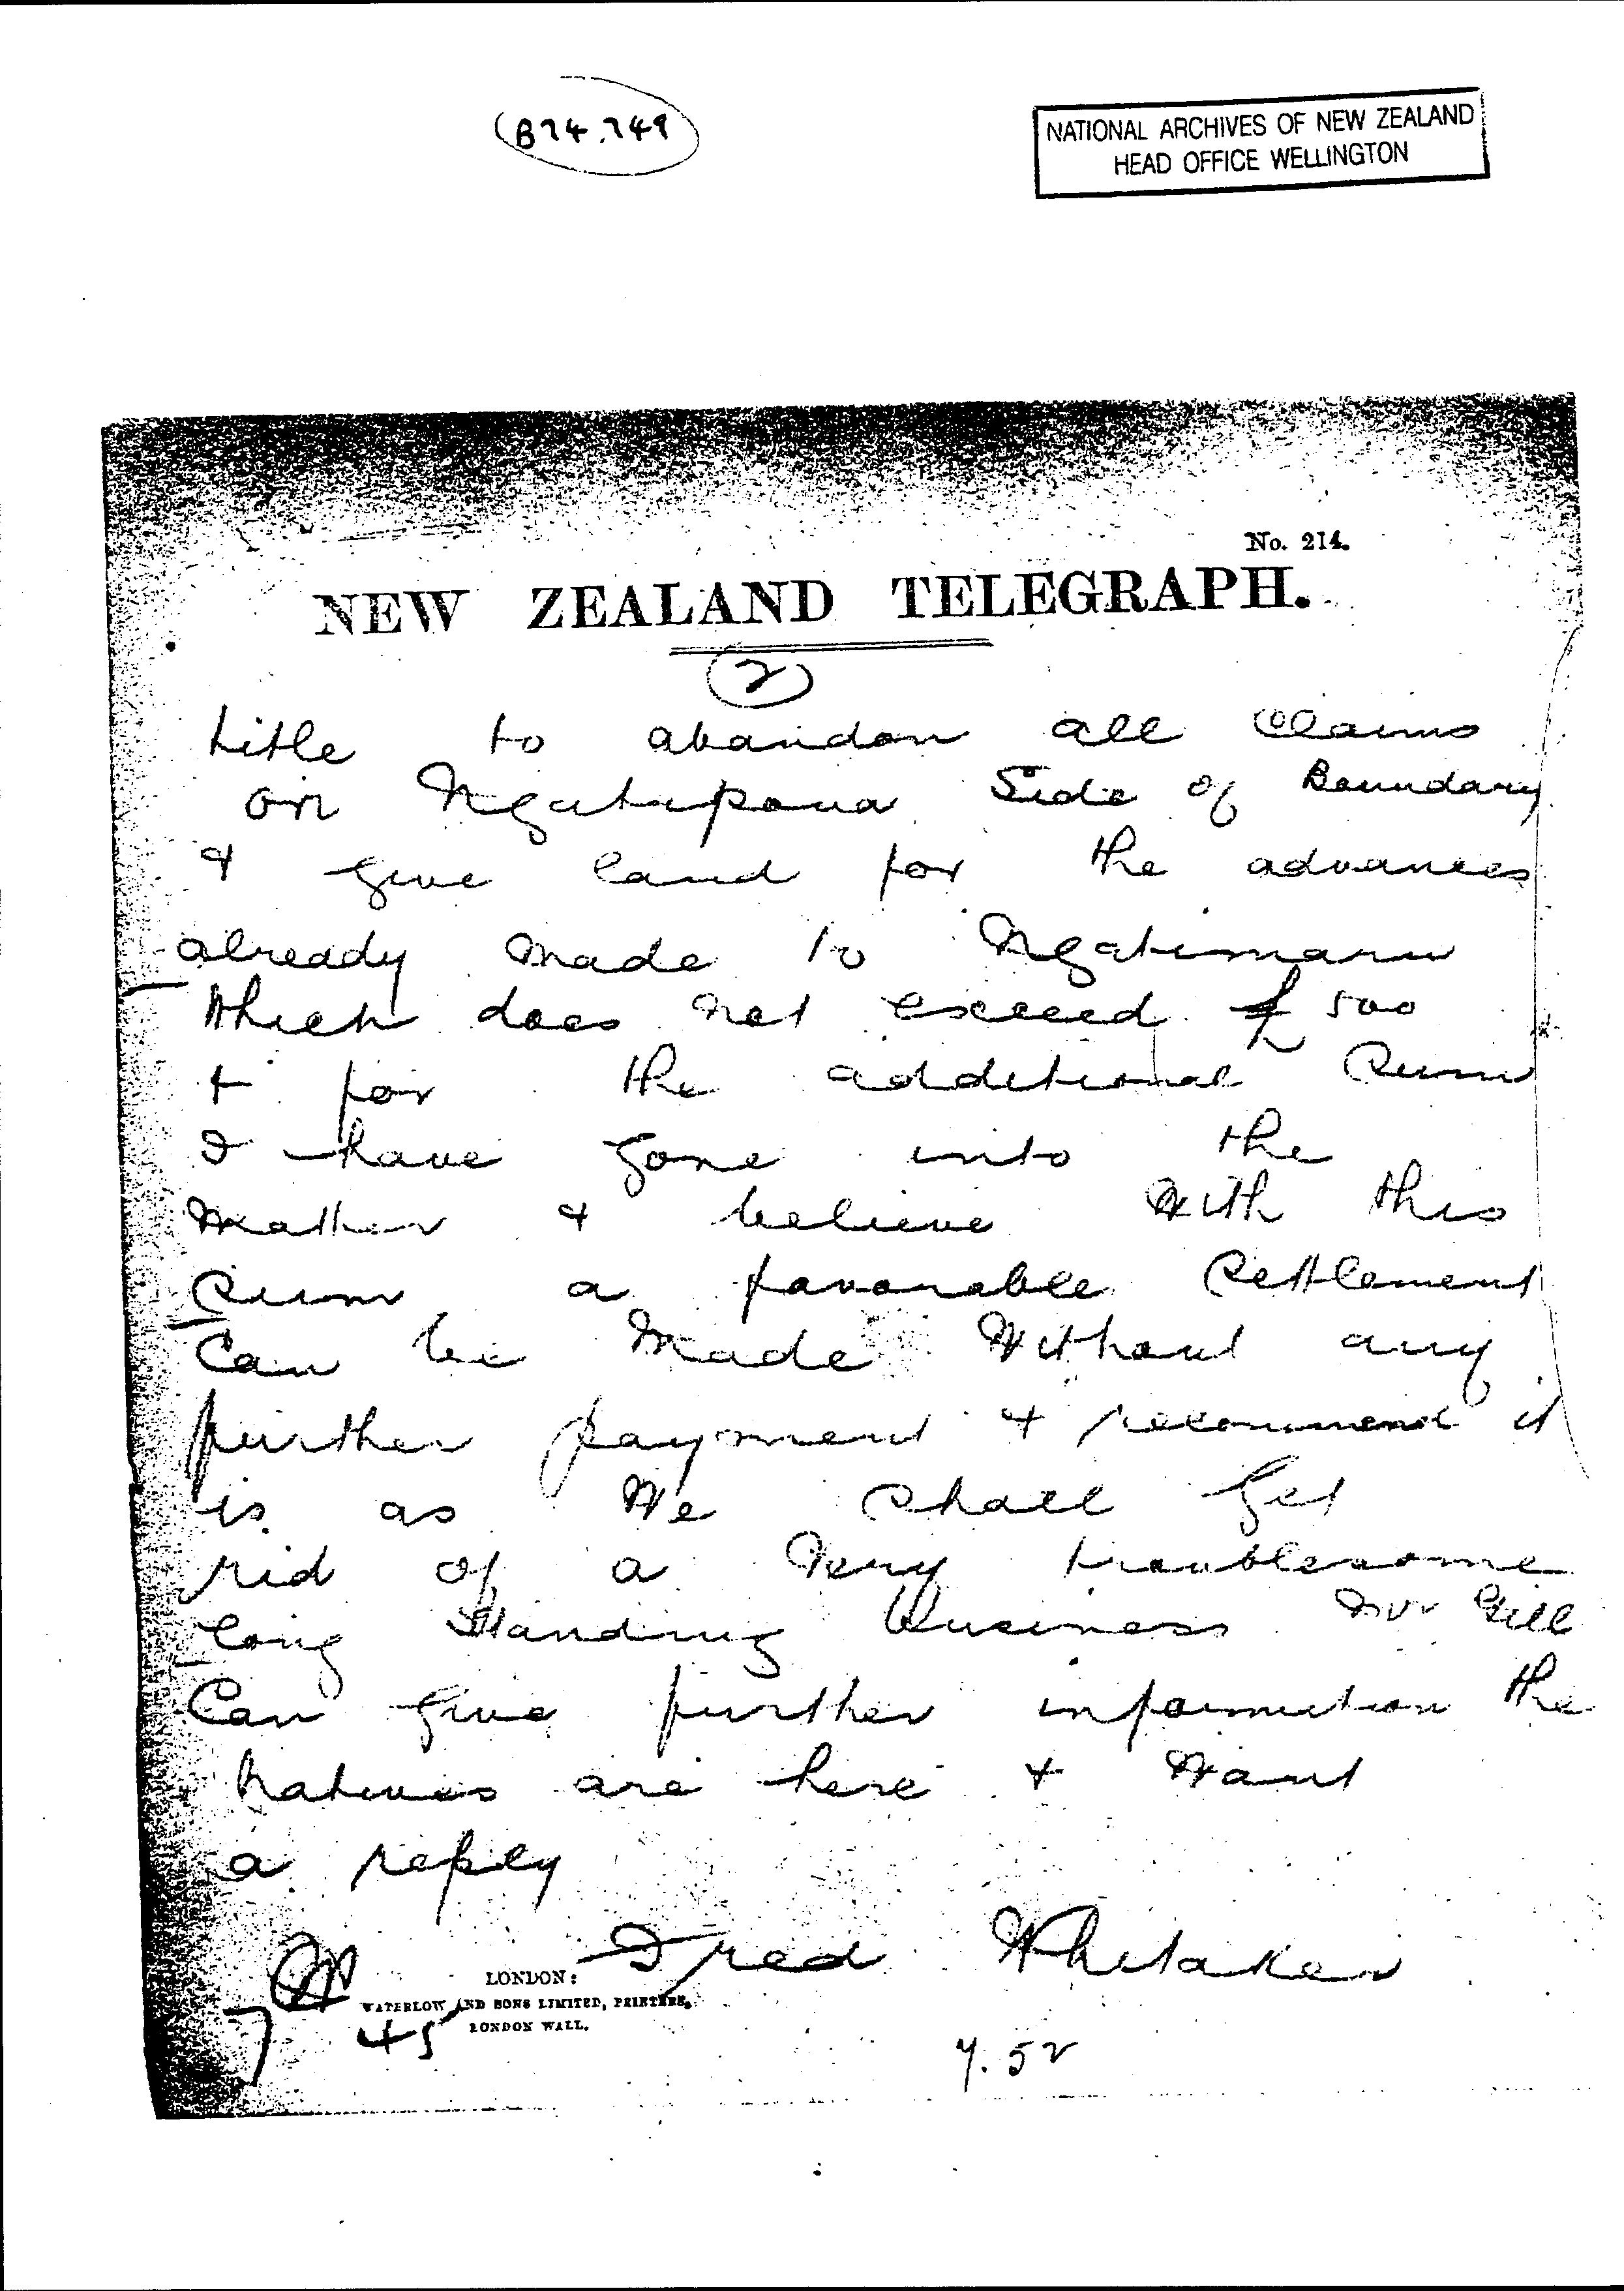 (B74.749)
NATIONAL ARCHIVES OF NEW ZEALAND
HEAD OFFICE WELLINGTON
No. 214.
NEW ZEALAND TELEGRAPH.
2
title to abandon all claims
on Ngatipoua Side of Boundary
& give land for the advances
already made to Ngatimaru
Which does not exceed £500
+ for the additional sum
I have gone into the
Matter & believe With this
sum a favorable settlement
Can be Made Without any
further payment & recommend it
is as We shall get
rid of a Very troublesome
long Standing business Mr Gill
Can give further information the
natives are here & Want
a reply
Fred Whitaker
LONDON:
WATERLOW AND SONS LIMITED, PRINTERS,
LONDON WALL.
7 45
7.52